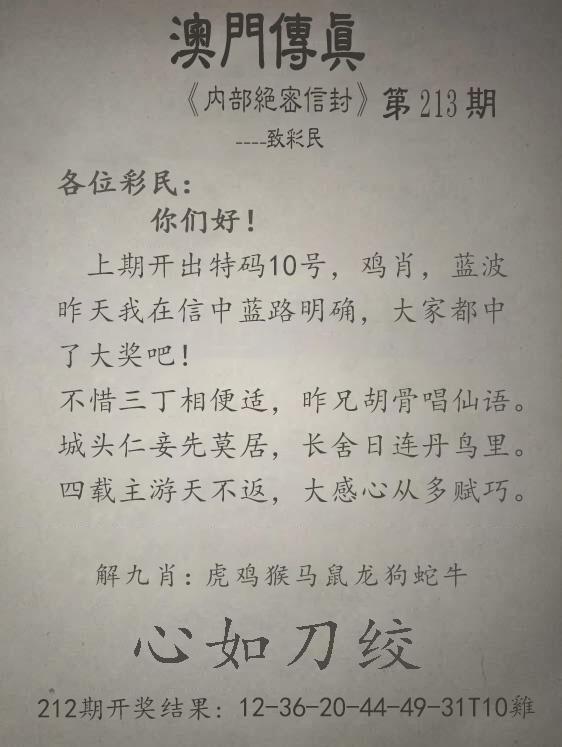 澳門傳眞
《内部絕密信封》第213期
----致彩民
各位彩民：
你们好！
上期开出特码10号，鸡肖，蓝波
昨天我在信中蓝路明确，大家都中
了大奖吧！
不惜三丁相便适，昨兄胡骨唱仙语。
城头仁妾先莫居，长舍日连丹鸟里。
四载主游天不返，大感心从多赋巧。
解九肖：虎鸡猴马鼠龙狗蛇牛
心如刀绞
212期开奖结果：12-36-20-44-49-31T10雞